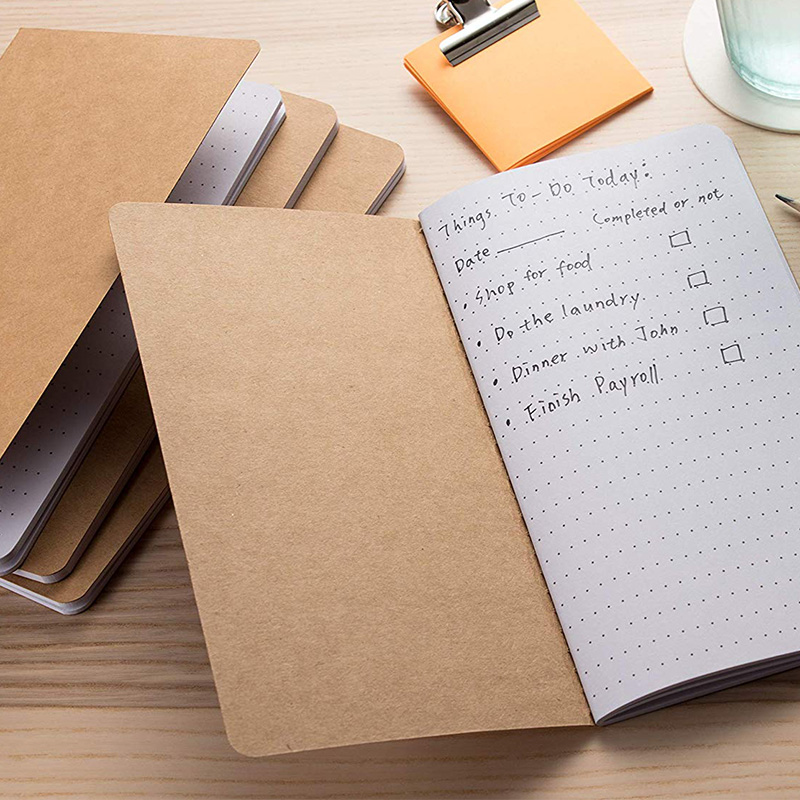 Things To-Do Today:
Date ______ Completed or not
• Shop for food
• Do the laundry
• Dinner with John
• Finish Payroll